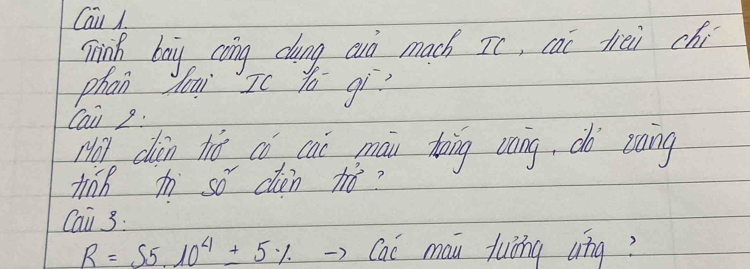 Câu 1.
Trình bày công dụng của mạch IC, các tiêu chí
phân loại IC là gì?
Câu 2:
Một điện trở có các màu trắng vàng, đỏ vàng
tính trị số điện trở?
Câu 3:
R = 55.10⁴ ± 5% → Các màu tương ứng?